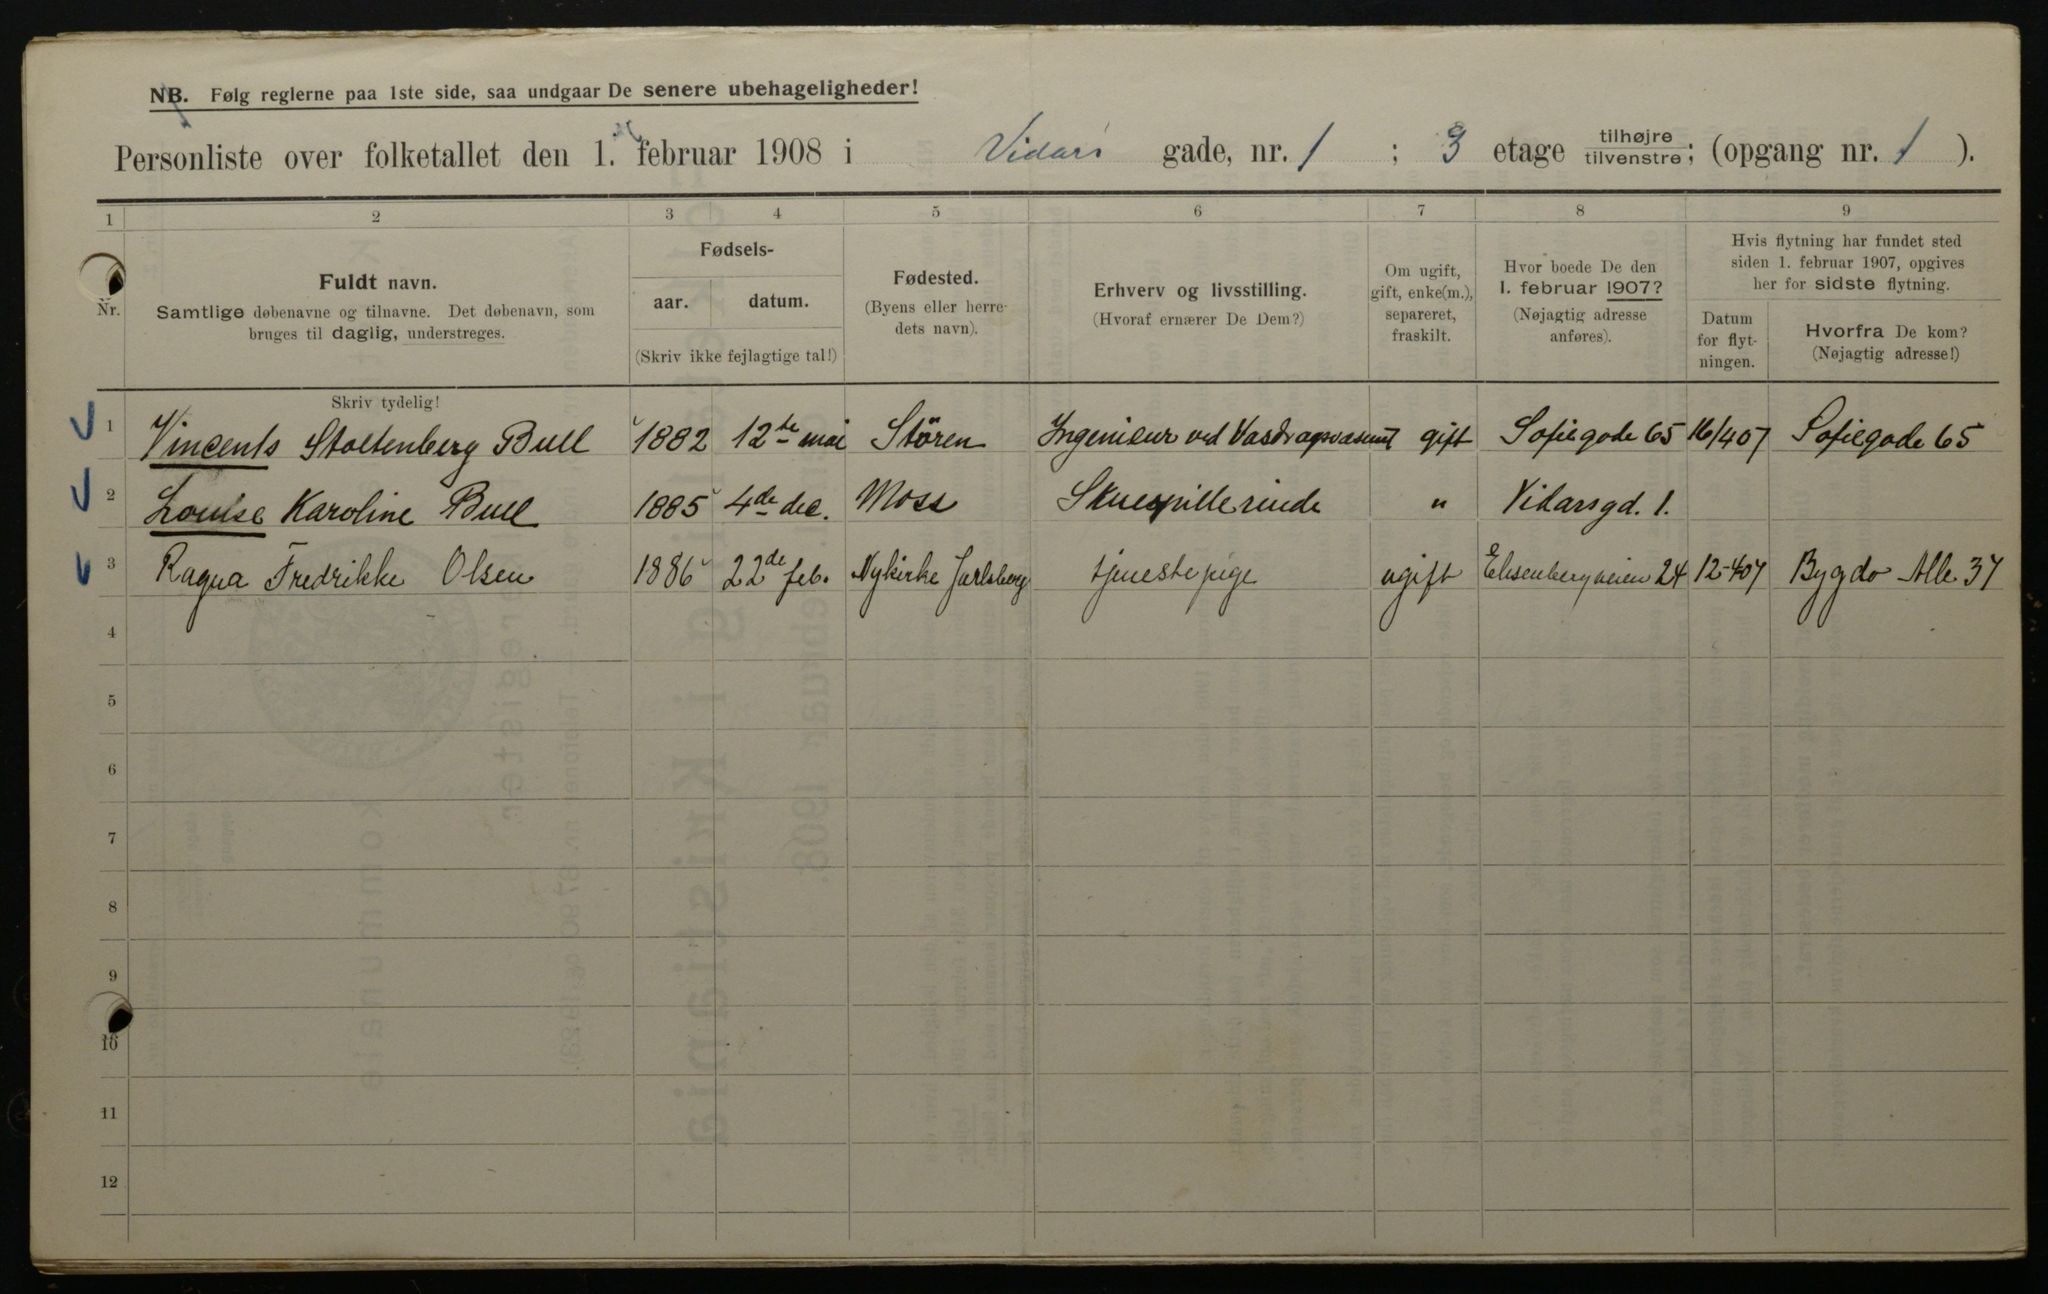 NB. Følg reglerne paa 1ste side, saa undgaar De senere ubehageligheder!
Personliste over folketallet den 1. februar 1908 i Vidars gade, nr. 1 ; 3 etage tilhøjre tilvenstre; (opgang nr. 1 ).
1 2 3 4 5 6 7 8 9
Nr.
Fuldt navn.
Samtlige døbenavne og tilnavne. Det døbenavn, som
bruges til daglig, understreges.
Fødsels-
aar. datum.
(Skriv ikke fejlagtige tal!)
Fødested.
(Byens eller herre-
dets navn).
Erhverv og livsstilling.
(Hvoraf ernærer De Dem?)
Om ugift,
gift, enke(m.),
separeret,
fraskilt.
Hvor boede De den
1. februar 1907?
(Nøjagtig adresse
anføres).
Hvis flytning har fundet sted
siden 1. februar 1907, opgives
her for sidste flytning.
Datum
for flyt-
ningen.
Hvorfra De kom?
(Nøjagtig adresse!)
Skriv tydelig!
1 Vincents Stoltenberg Bull 1882 12te mai Stören Ingeniør ved gift Sofiegade 65 16/4 07 Sofiegade 65
2 Louise Karoline Bull 1885 4de dec. Moss Skuespillerinde " Vidarsgd. 1.
3 Ragna Fredrikke Olsen 1886 22de feb. Nykirke Jarlsberg tjenestepige ugift Elisenbergveien 24 12-4 07 Bygdo Alle 37
4
5
6
7
8
9
10
11
12